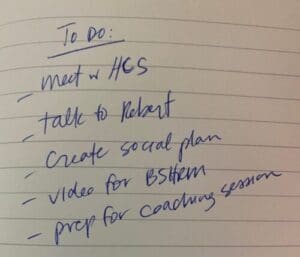 To Do:
- meet w HGS
- talk to Robert
- create social plan
- video for BSHRM
- prep for coaching session